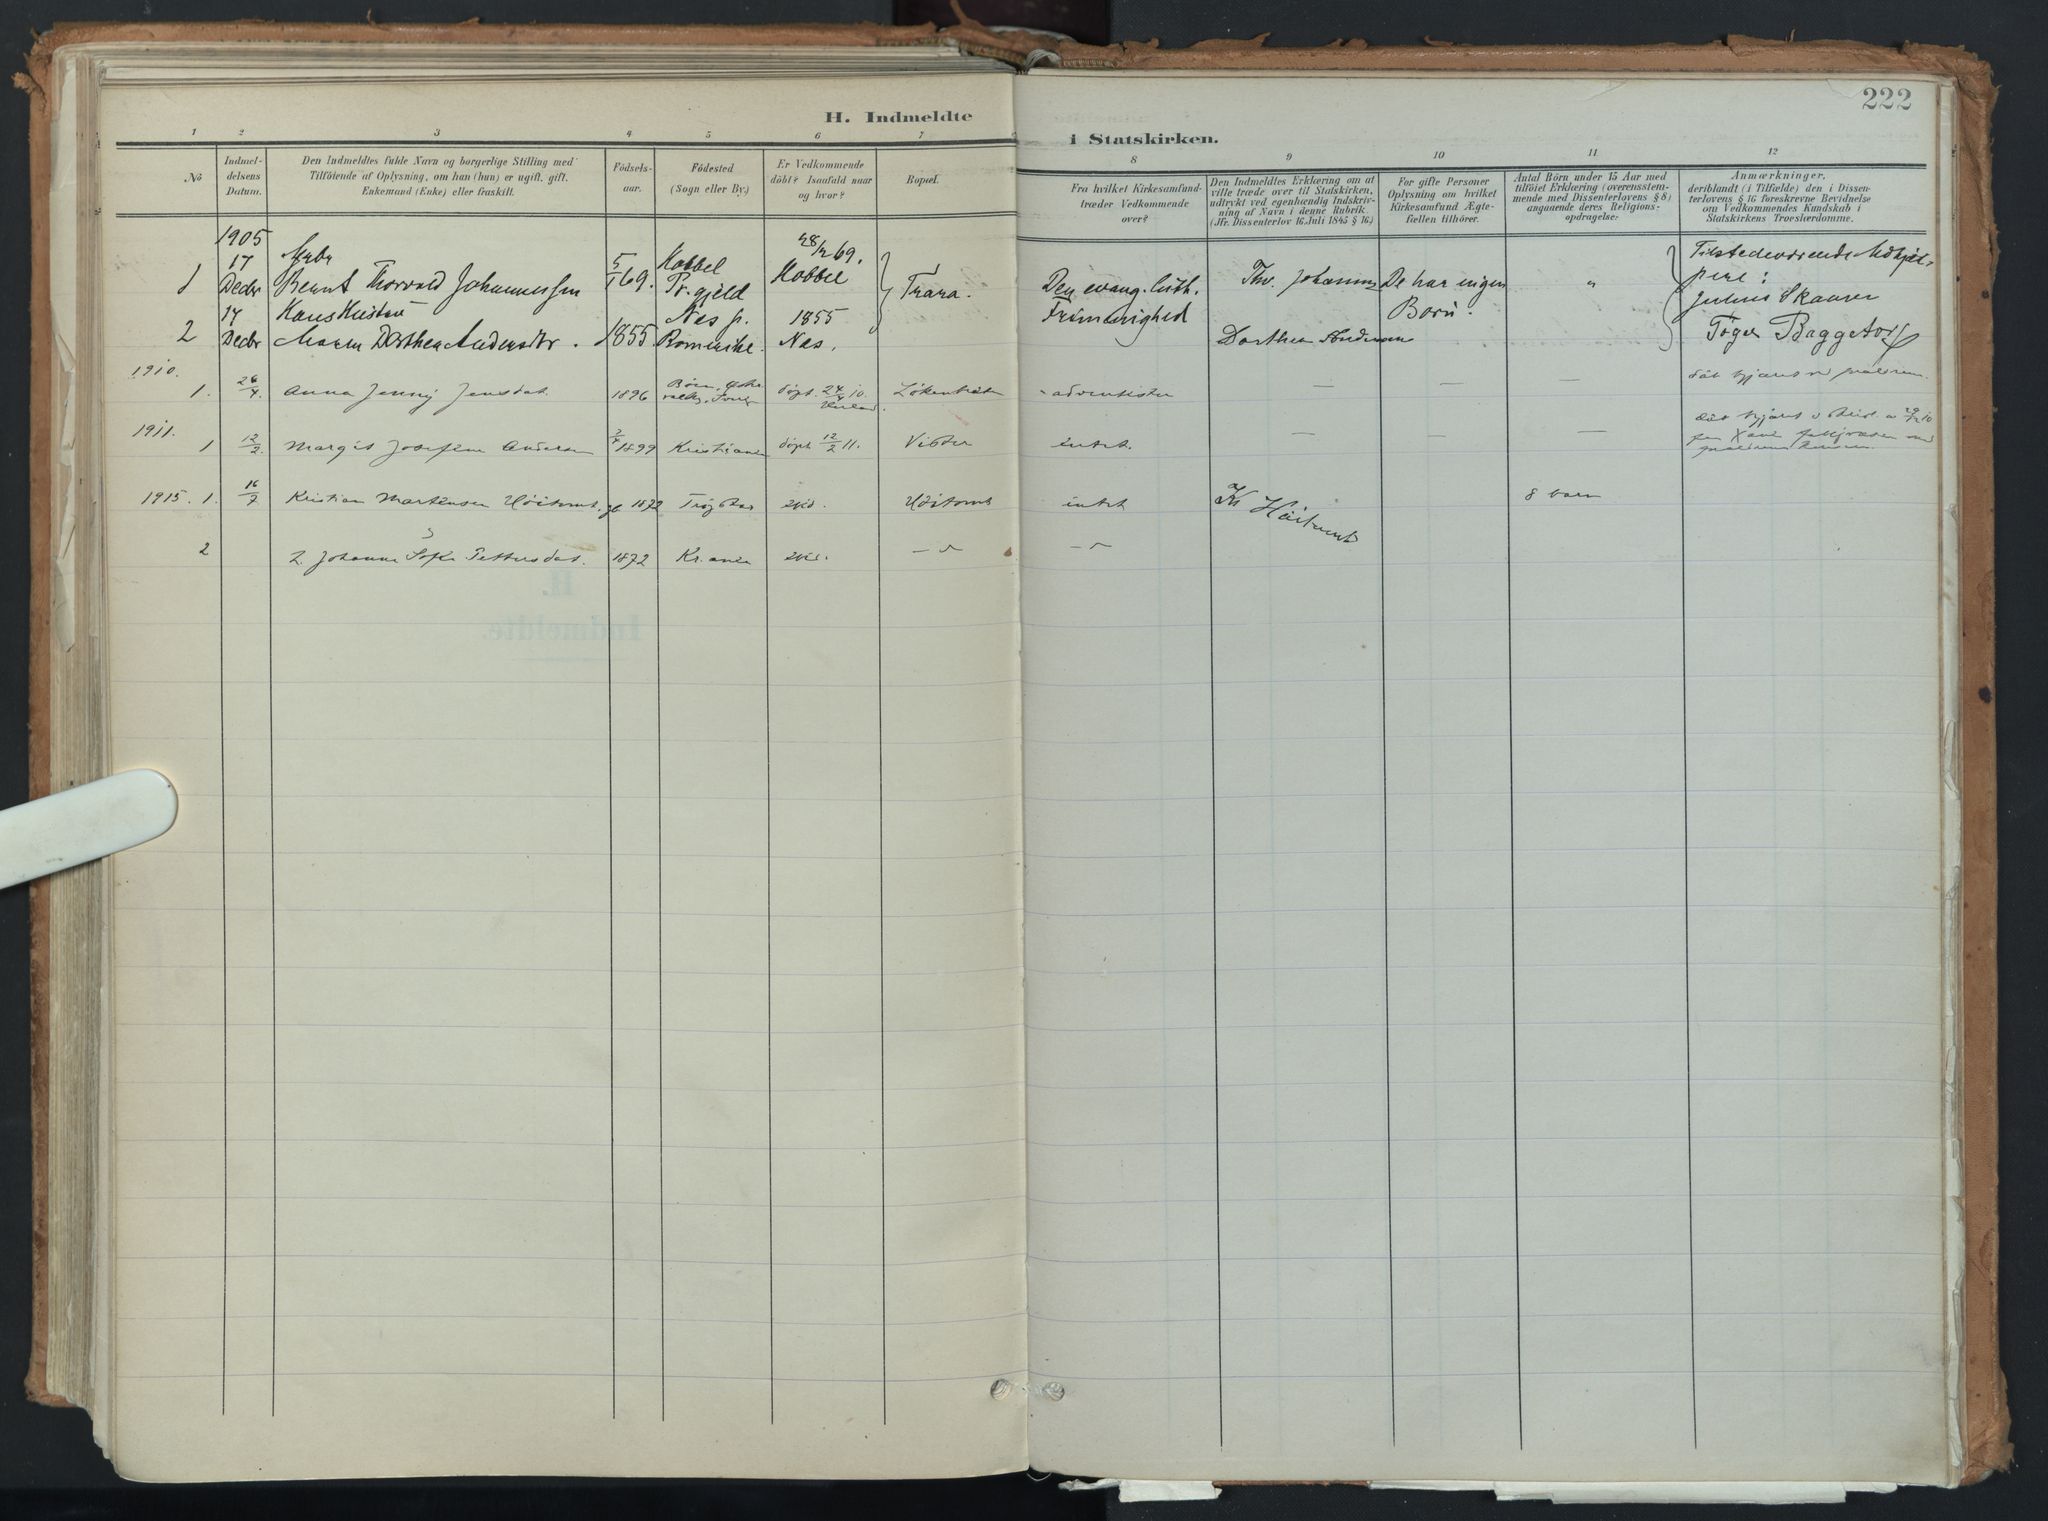 222
H. Indmeldte
i Statskirken.
1 2 3 4 5 6 7
8 9 10 11 12
No
Indmel-
delsens
Datum.
Den Indmeldtes fulde Navn og borgerlige Stilling med
Tilföiende af Oplysning, om han (hun) er ugift, gift.
Enkemand (Enke) eller fraskilt.
Födsels-
aar.
Födested
(Sogn eller By.)
Er Vedkommende
döbt? Isaafald naar
og hvor?
Bopæl.
Fra hvilket Kirkesamfund
træder Vedkommende
over?
Den Indmeldtes Erklæring om at
ville træde over til Statskirken,
udtrykt ved egenhændig Indskriv-
ning af Navn i denne Rubrik.
(Jfr. Dissenterlov 16. Juli 1845 § 16.)
For gifte Personer
Oplysning om hvilket
Kirkesamfund Ægte-
fællen tilhörer.
Antal Börn under 15 Aar med
tilföiet Erklæring (overensstem-
mende med Dissenterlovens § 8)
angaaende deres Religions-
opdragelse:
Anmærkninger,
deriblandt (i Tilfælde) den i Dissen-
terlovens § 16 foreskrevne Bevidnelse
om Vedkommendes Kundskab i
Statskirkens Troeslærdomme.
1905
1 17 Decbr Bernt Thorvald Johannessen 5/1 69. Hobbel Pr.gjeld 28/2 69. Hobbel
Trara. Den evang. luth. Frimenighed Thv. Johannes De har ingen Börn. "
Tilstedeværende Medhjæl-
pere:
Julius Skaarer
Töger Baggetorp
2 17 Decbr Hans Hustru Maren Dorthea Andersdtr. 1855 Nes p. Romerike. 1855 Nes.
Dorthea Andersen
1910.
1. 26/4 Anna Jenny Jensdat. 1896 döpt 24/4 10. adventister — — —
1911.
1 12/2 Margit Josefine Andersen 3/4 1899 Kristiania döpt 12/2 11. Vister intet. — — —
1915. 1. 16/7 Kristian Martinsen Höitomt. 1872 Trögstad Höitomt intet Kr Höitomt 8 barn
2 2. Johanne Sofie Pettersdat. 1872 Kr.ania